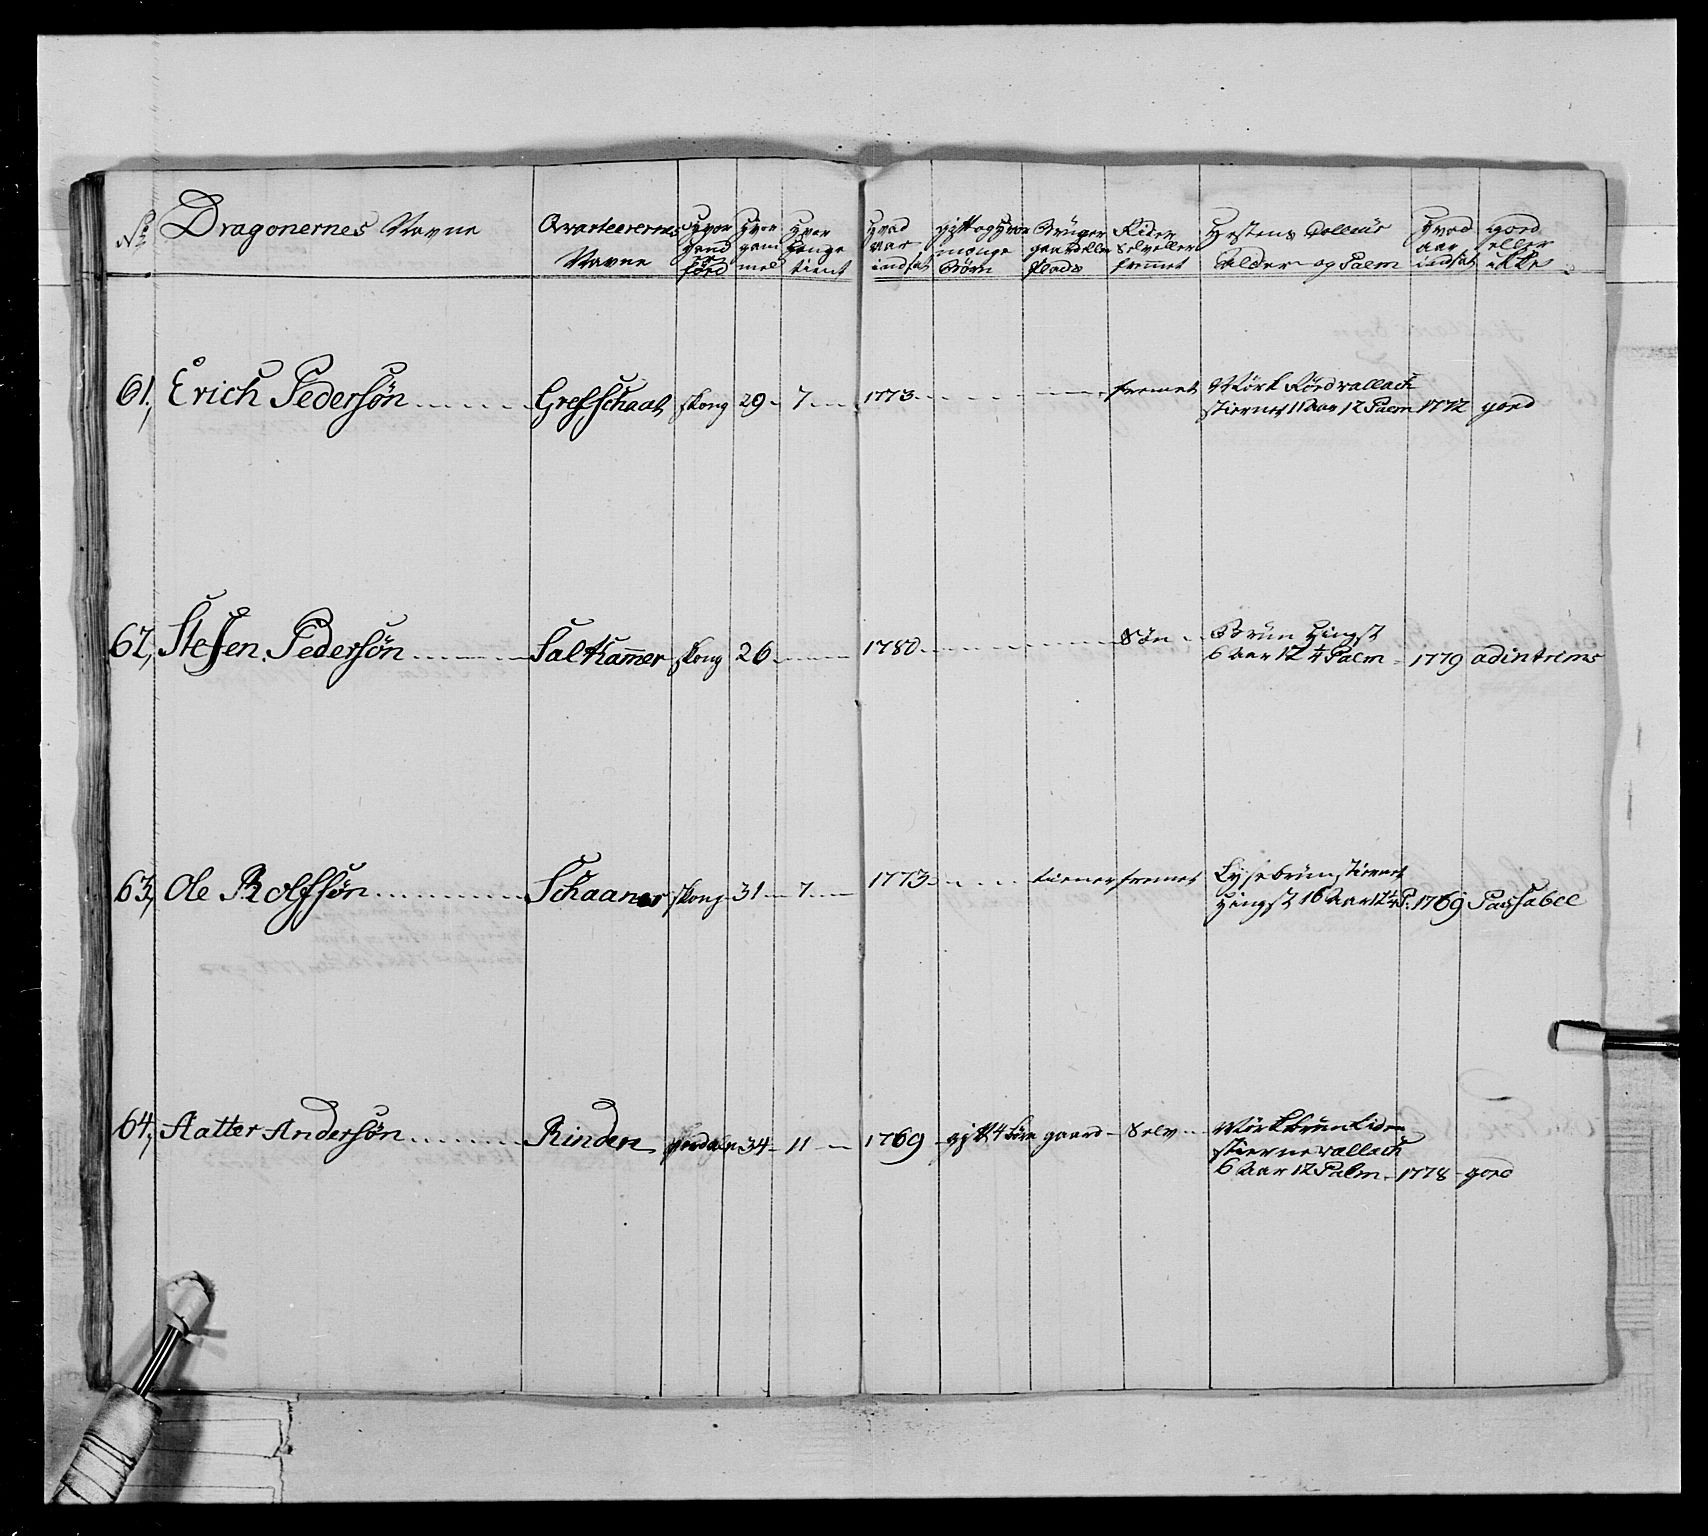 No Dragonernes Navne Qvarteerernes Navne Hvor hand er föed Hvor gammel Hvor lenge tient Hvad aar indsat gift og hvor mange Börn Brüger gaard eller plads Rider Selv eller fremmet Hestens Colleur Alder og Palm Hvad aar indsat goed eller ikke
61, Erich Pedersön Grefschaat Skong 29 7 1773 fremet Mörk Röed vallach
stiernet 11 Aar 12 Palm 1772 goed
62, Steffen Pedersön Saltkammer Skong 26 1780 Sön Brun Hingst
6 Aar 12 1/4 Palm 1779 adintrims
63, Ole Rolfsön Schaaner Skong 31 7 1773 tiener fremet Lysebrun stiernet
Hingst 16 Aar 12 1/4 P: 1769 Passabel
64, Aatter Andersön Rinden 34 11 1769 gift 4 börn gaard Selv Mörkbrun liden
stierne vallach
6 Aar 12 Palm 1778 goed